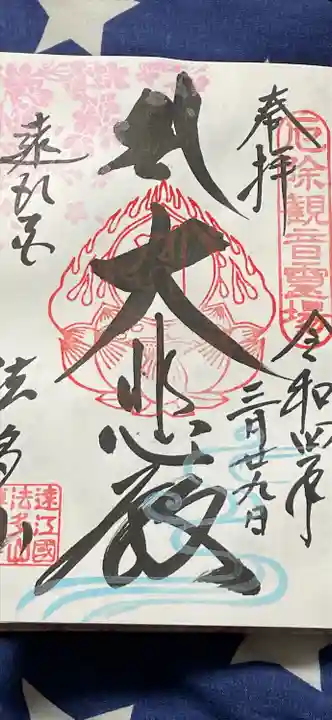 奉拝
厄除観音霊場
令和四年
三月廿九日
大悲殿
遠江国
法多山
遠江國
法多山